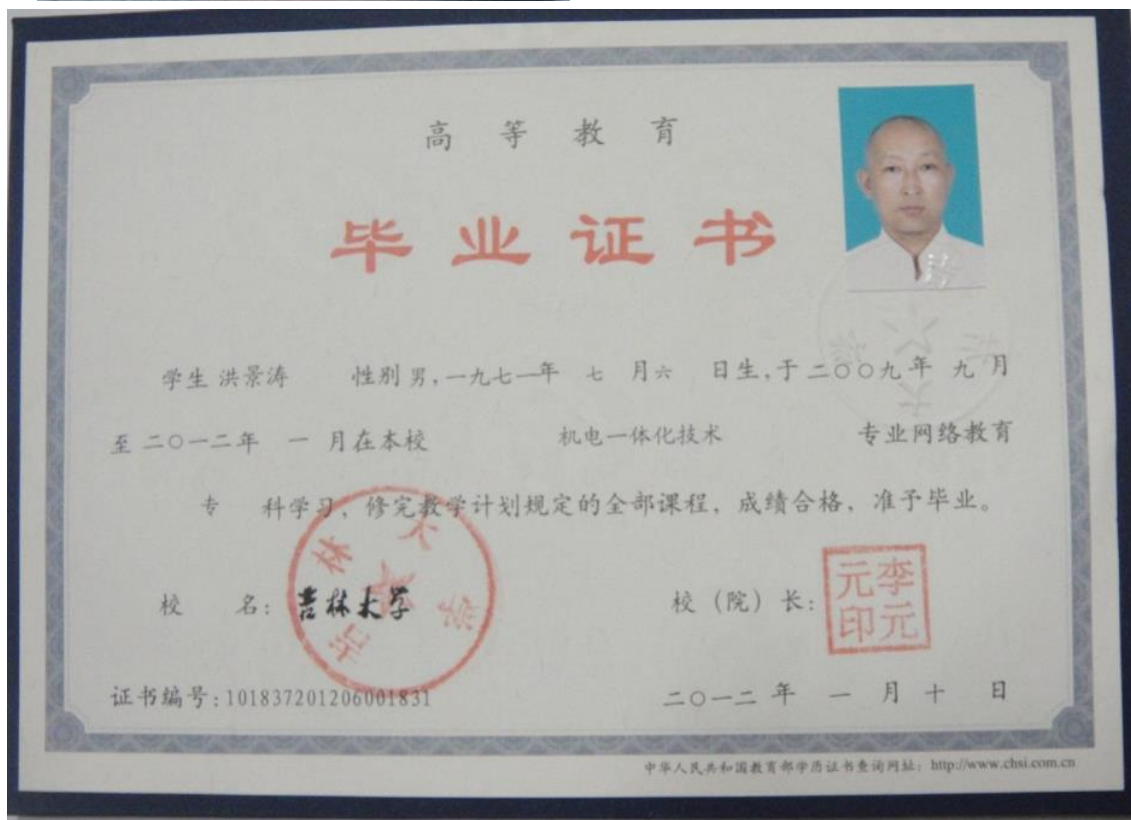 高等教育
毕业证书
学生 洪景涛 性别 男,一九七一年 七 月六 日生,于二〇〇九年 九月
至二〇一二年 一 月在本校 机电一体化技术 专业网络教育
专 科学习，修完教学计划规定的全部课程，成绩合格，准予毕业。
校 名: 吉林大学 校（院）长:
吉林大学
李元元印
证书编号:101837201206001831 二〇一二 年 一 月 十 日
中华人民共和国教育部学历证书查询网址: http://www.chsi.com.cn